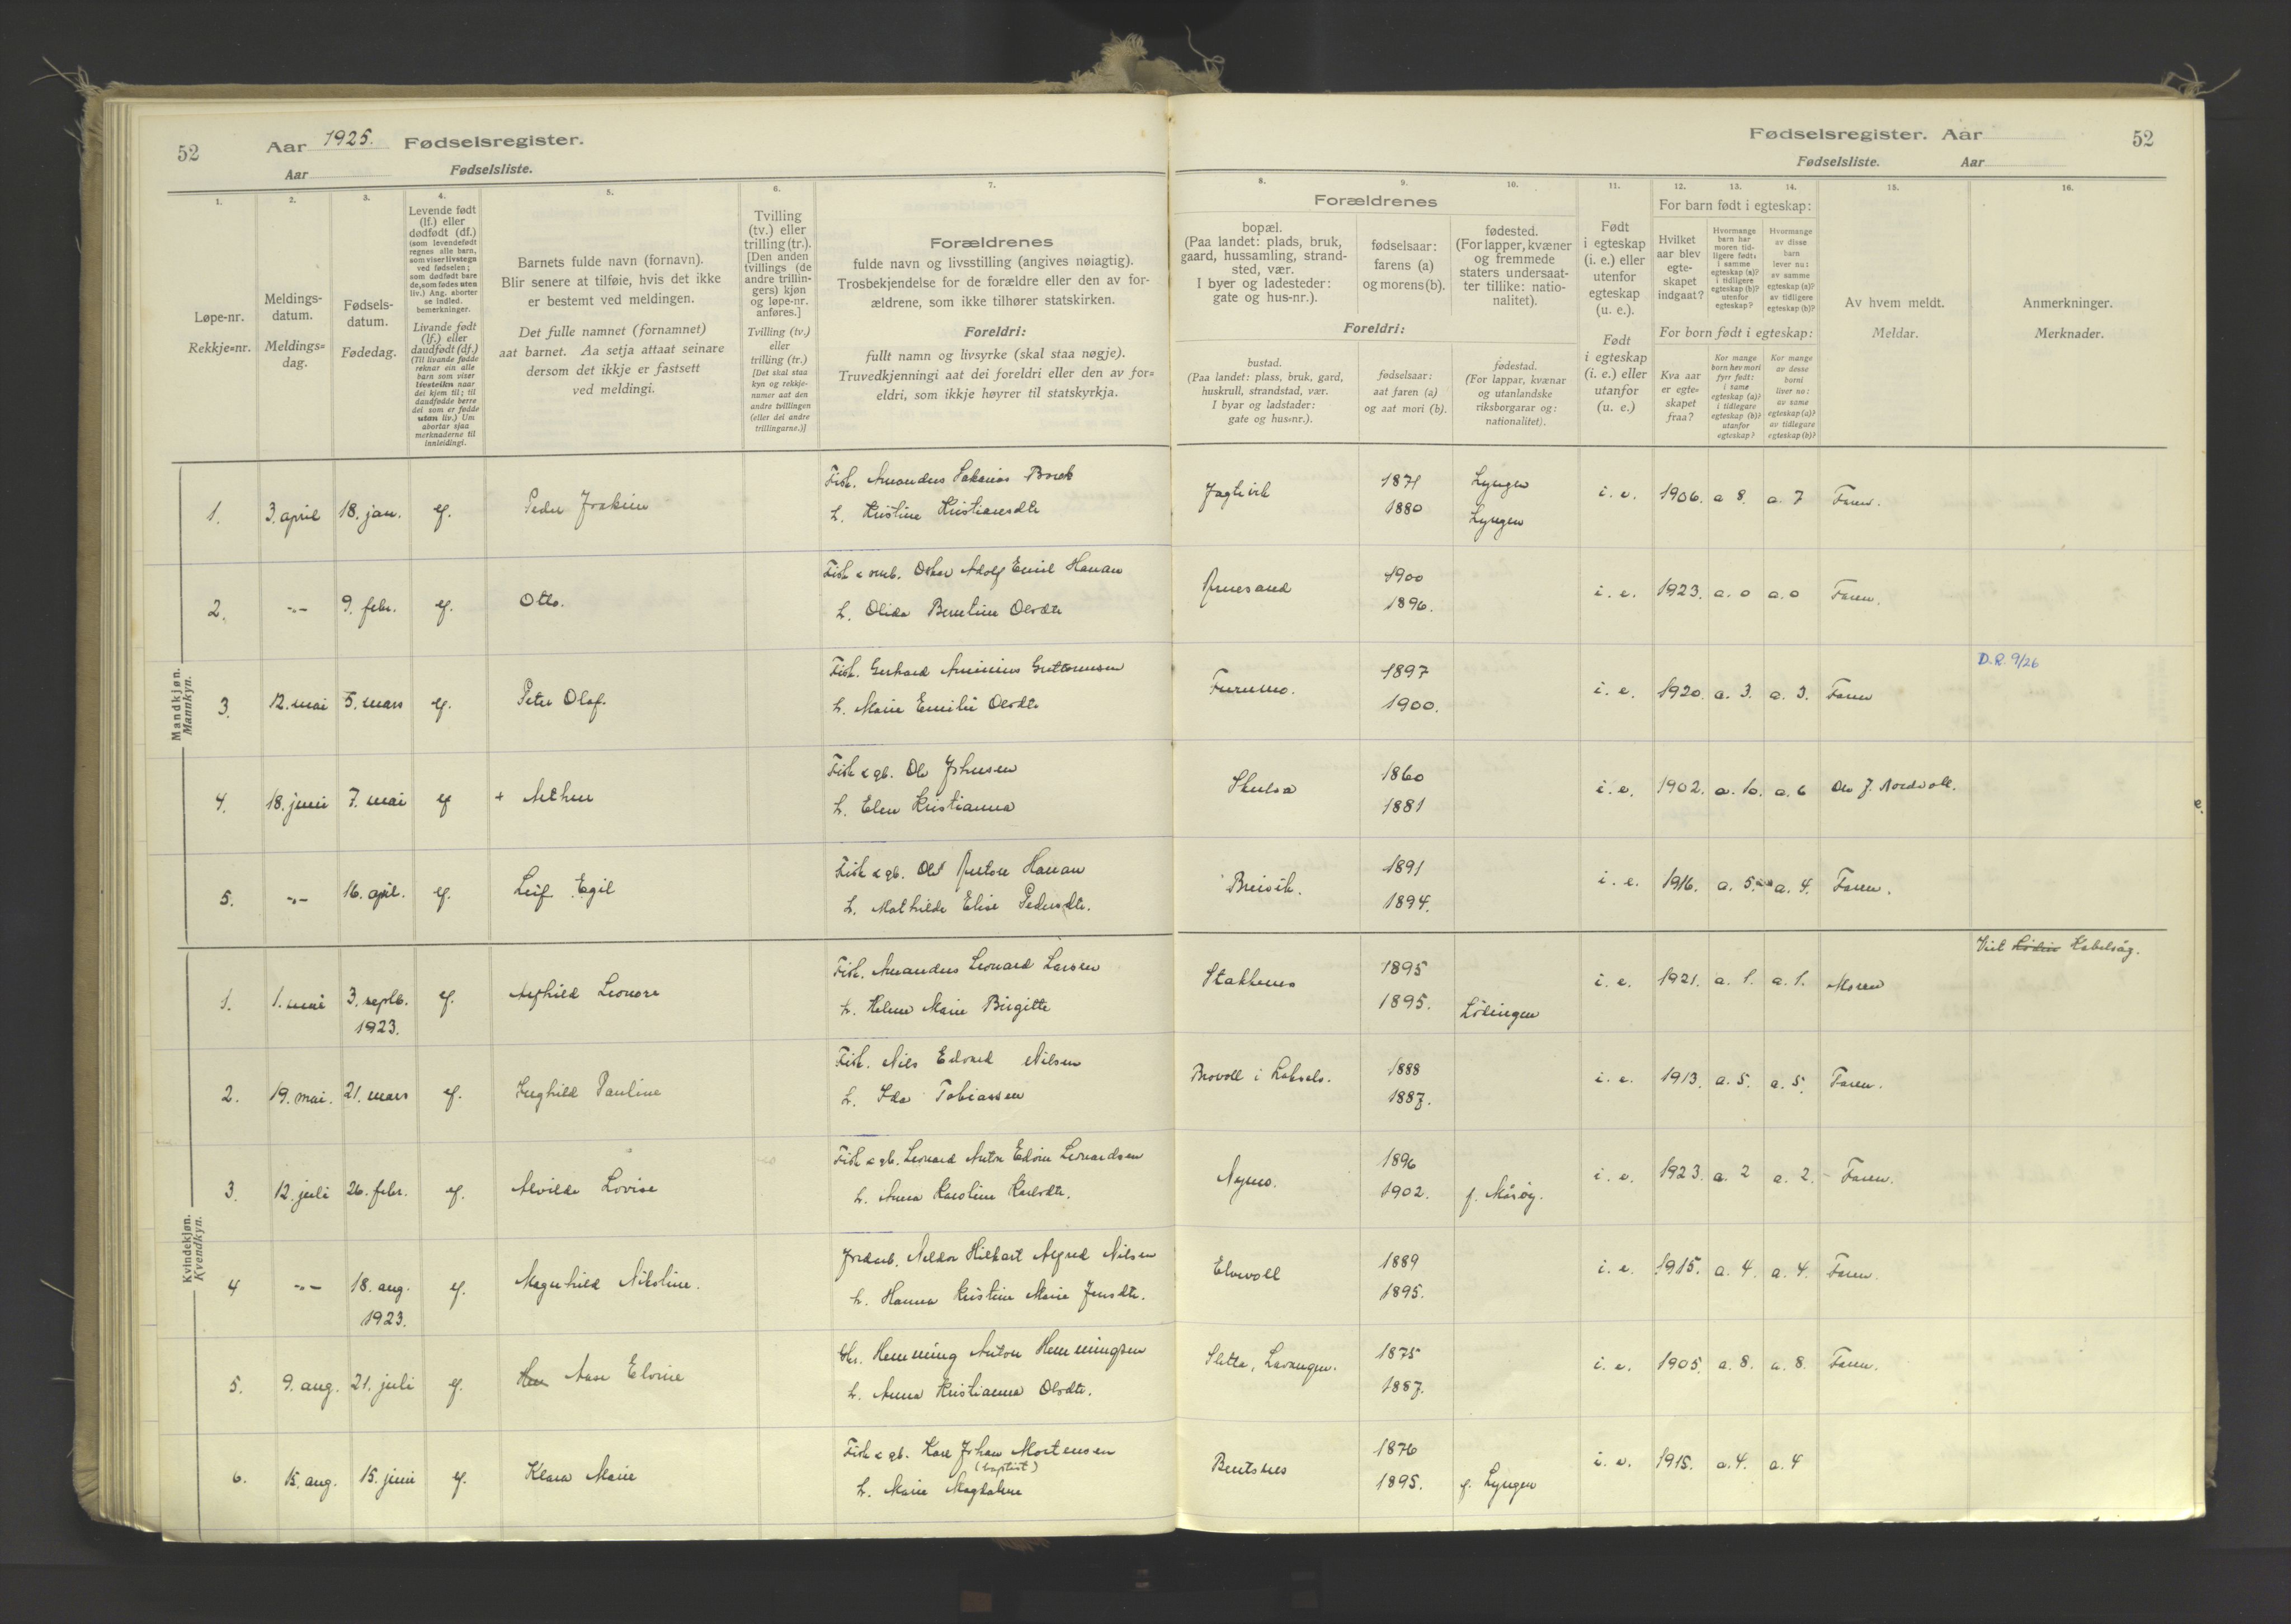 52
Aar 1925. Fødselsregister.
Aar Fødselsliste.
Fødselsregister. Aar
52
Fødselsliste. Aar
1.
Løpe-nr.
Rekkje=nr.
2.
Meldings-
datum.
Meldings=
dag.
3.
Fødsels-
datum.
Fødedag.
4.
Levende født
(lf.) eller
dødfødt (df.)
(som levendefødt
regnes alle barn,
som viser livstegn
ved fødselen;
som dødfødt bare
de, som fødes uten
liv.) Ang. aborter
se indled.
bemerkninger.
Livande født
(lf.) eller
daudfødt (df.)
(Til livande fødde
reknar ein alle
barn som viser
livsteikn naar
dei kjem til; til
daudfødde berre
dei som er fødde
utan liv.) Um
abortar sjaa
merknaderne til
innleidingi.
5.
Barnets fulde navn (fornavn).
Blir senere at tilføie, hvis det ikke
er bestemt ved meldingen.
Det fulle namnet (fornamnet)
aat barnet. Aa setja attaat seinare
dersom det ikkje er fastsett
ved meldingi.
6.
Tvilling
(tv.) eller
trilling (tr.).
[Den anden
tvillings (de
andre trillin-
gers) kjøn
og løpe-nr.
anføres.]
Tvilling (tv.)
eller
trilling (tr.)
[Det skal staa
kyn og rekkje-
numer aat den
andre tvillingen
(eller dei andre
trillingarne.)]
7.
Forældrenes
fulde navn og livsstilling (angives nøiagtig).
Trosbekjendelse for de forældre eller den av for-
ældrene, som ikke tilhører statskirken.
Foreldri:
fullt namn og livsyrke (skal staa nøgje).
Truvedkjenningi aat dei foreldri eller den av for=
eldri, som ikkje høyrer til statskyrkja.
Forældrenes
Foreldri:
8.
bopæl.
(Paa landet: plads, bruk,
gaard, hussamling, strand-
sted, vær.
I byer og ladesteder:
gate og hus-nr.).
bustad.
(Paa landet: plass, bruk, gard,
huskrull, strandstad, vær.
I byar og ladstader:
gate og hus=nr.).
9.
fødselsaar:
farens (a)
og morens (b).
fødselsaar:
aat faren (a)
og aat mori (b).
10.
fødested.
(For lapper, kvæner
og fremmede
staters undersaat-
ter tillike: natio-
nalitet).
fødestad.
(For lappar, kvænar
og utanlandske
riksborgarar og:
nationalitet).
11.
Født
i egteskap
(i. e.) eller
utenfor
egteskap
(u. e.).
Født
i egteskap
(i. e.) eller
utanfor
(u. e.)
For barn født i egteskap:
For born født i egteskap:
12.
Hvilket
aar blev
egte-
skapet
indgaat?
Kva aar
er egte=
skapet
fraa?
13.
Hvormange
barn har
moren tid-
ligere født:
i samme
egteskap (a)?
i tidligere
egteskap (b)?
utenfor
egteskap?
Kor mange
born hev mori
fyrr født:
i same
egteskap (a)?
i tidlegare
egteskap (b)?
utanfor
egteskap?
14.
Hvormange
av disse
barn
lever nu:
av samme
egteskap (a)?
av tidligere
egteskap (b)?
Kor mange
av desse
borni
liver no:
av same
egteskap (a)?
av tidlegare
egteskap (b)?
15.
Av hvem meldt.
Meldar.
16.
Anmerkninger.
Merknader.
Mandkjøn.
Mannkyn.
1. 3. april 18. jan. lf. Peder Joakim Fisk. Amandus Sakarias Brock Jagtvik 1871 Lyngen i. e. 1906. a 8. a. 7 Faren.
h. Kristine Kristiansdtr 1880 Lyngen
2. -"- 9. febr. lf. Otto. Fisk & småb. Oskar Adolf Emil Hansen 1900 i. e. 1923. a. 0 a. 0 Faren.
h. Olida Berntine Olsdtr 1896.
3. 12. mai 5. mars lf. Peter Olaf. Fisk. Gerhard Arminius Guttormsen Furumo. 1897 i. e. 1920. a. 3. a. 3. Faren D.R. 9/26
h. Marie Emilie Olsdtr 1900.
4. 18. juni 7. mai lf + Arthur Fisk & gb. Ole Johnsen 1860 i. e. 1902. a. 10. a. 6 Ole J. Nordvoll.
h. Elen Kristianna 1881
5. -"- 16. april. lf. Leif Egil Fisk & gb. Olaf Antore Hansen Breivik. 1891 i. e. 1916. a. 5. a. 4. Faren.
h. Mathilde Elise Pedersdtr. 1894.
Kvindekjøn.
Kvendkyn.
1. 1. mai 3. septb. 1923. lf. Leonore Fisk. Amandus Leonard Larsen Stakkenes 1895 i. e. 1921. a. 1. a. 1. Moren Kabelvåg.
h. Helene Marie Birgitte 1895. Lödingen
2. 19. mai. 21. mars lf. Inghild Pauline Fisk. Nils Edvard Nilsen Brovoll i Lakselv. 1888 i. e. 1913. a. 5. a. 5. Faren.
h. Ida Tobiassen 1887.
3. 12. juli 26. febr. lf. Alvilde Lovise Fisk & gb. Leonard Anton Edvin Leonardsen Nymo. 1896 i. e. 1923. a. 2 a. 2. Faren.
h. Anna Karoline Karlsdtr. 1902. f. Måsöy.
4 -"- 18. aug. 1923. lf. Magnhild Nikoline. Jordarb. Hilbart Alfred Nilsen Elvevoll 1889 i. e. 1915. a. 4. a. 4. Faren.
h. Hanna Kristine Marie Jensdtr. 1895.
5. 9. aug. 21. juli lf. Aase Elvine Henning Anton Henningsen Sletta, Lavangen. 1875 i. e. 1905. a. 8. a. 8. Faren.
h. Anna Kristianna Olsdtr. 1887.
6. 15. aug. 15. juni lf. Klara Marie Fisk & gb. Karl Johan Mortensen Bentsnes 1876 i. e. 1915. a. 4. a. 4
(baptist)
h. Marie Magdalene 1895. f. Lyngen